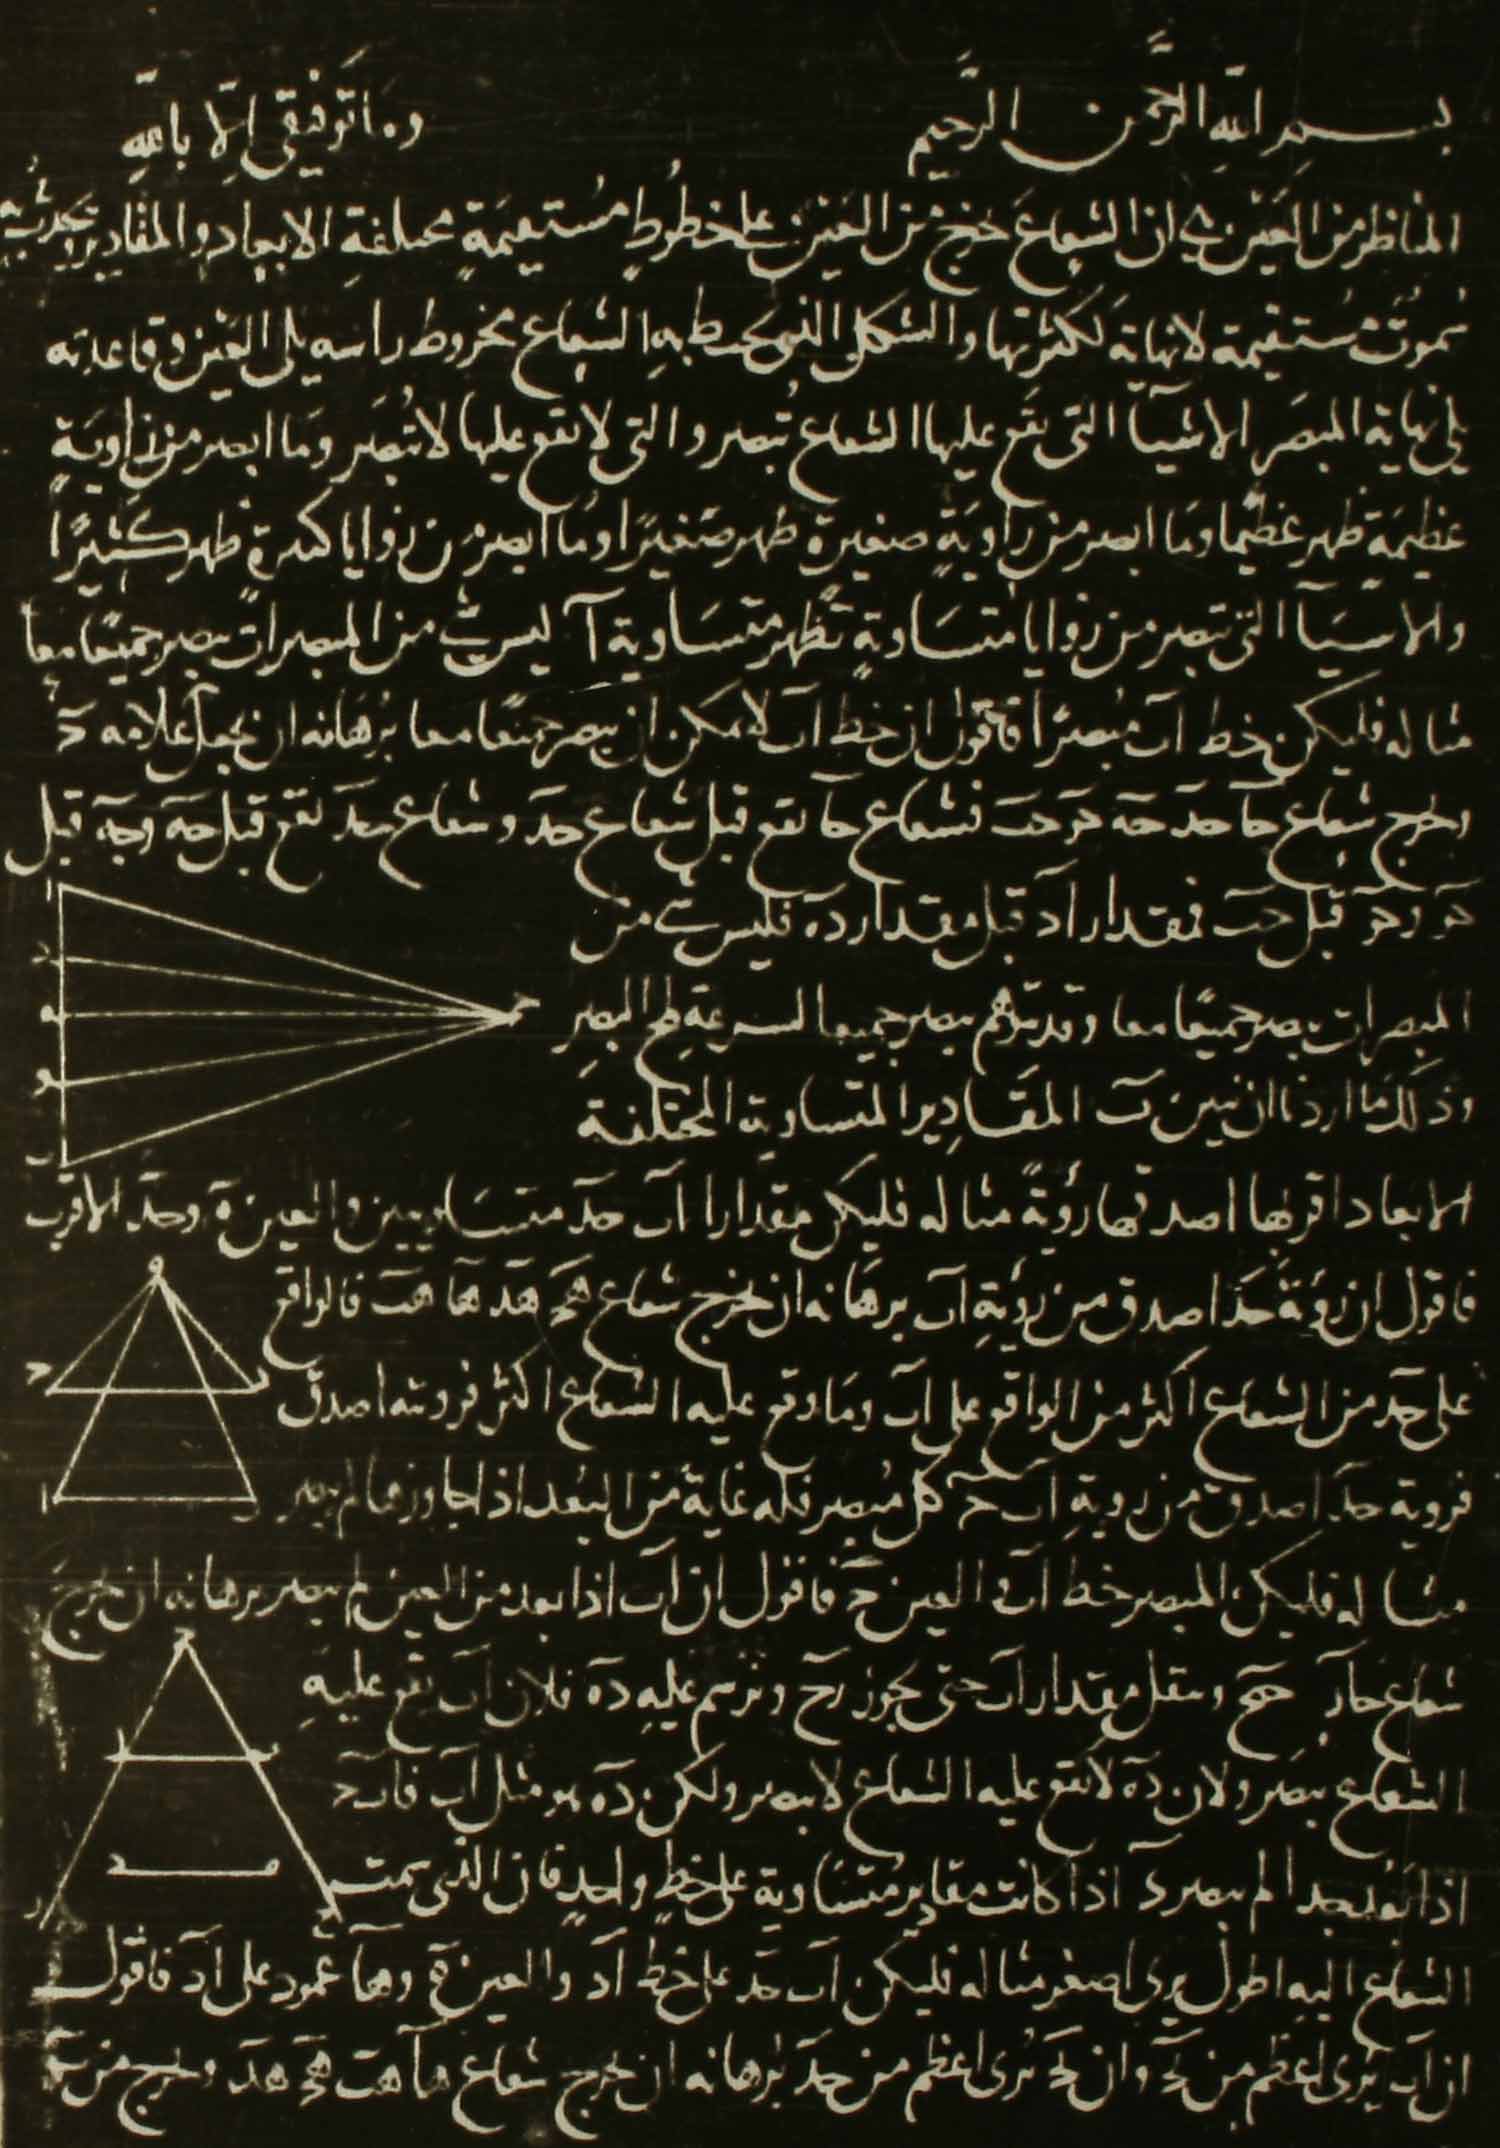 بسم الله الرَّحمن الرَّحيم وما توفيقي إلّا باللهِ
المناظر من العَيْن ان الشعاعَ يخرج من العَين على خطُوطٍ مُستقيمَةٍ مختلفةِ الابعاد والمقادير وتحدث
سُموتٌ مُستقيمة لا نهاية لكثرتها والشكل الذي يحيط بهِ الشعاع مخروط راسه يلى العَين وقاعدته
يلى نهاية المبصَر الاشيآ التى يقع عليها الشعاع تُبصر والتى لا يقع عليها لا تُبصَر ومَا ابصر من زاويَةٍ
عظيمَة ظهر عَظيمًا ومَا ابصر من زاويَةٍ صغيرةٍ ظهر صَغيرًا ومَا ابصر من زوايا كثيرةٍ ظهر كَثيرًا
والاشيَآ التى تبصر من زوايا متسَاويةٍ تظهر متسَاوية آ ليس شئ من المبصرات يبصر جميعًا معا
مثاله فليكن خط آب مُبصَرًا فاقول ان خط آب لا يمكن ان يبصر جميعًا معا بُرهَانه ان نجعل علامه حَ
ونخرج شعَاع حآ حد حه حو حب فشعَاع حآ يقع قبل شعاع حد وشعَاع حد يقع قبل حه وحه قبل
حو وحو قبل حب فمقدار اد قبل مقدار ده فليس شئ من
المبصرات يبصر جميعًا معا وقد يتوهم يبصر جميعا لسرعة البصر
وذلك مَا اردنا ان نبين بَ المقَادِير المتساوية المختلفة
الابعاد اقربها اصدقها رؤيةً مثاله فليكن مقدارا آب حد متسَاويين والعين ه وحد الاقرب
فاقول ان رؤيةَ حد اصدق من رؤيةِ آب برهَانه ان نخرج شعاع هح هد هآ هب فالواقع
على حد من الشعَاع اكثر من الواقع على آب ومَا وقع عليه الشعَاع اكثر فرويته اصدق
فروية حد اصدق من رويةِ آب حَ كل مُبصر فله غاية من البُعد اذا جاوزها لم يبصر
مثاله فليكن المبصر خط آب والعين حَ فاقول ان آب اذا بعد من العين لم يبصر برهانه ان نخرج
شعاع حار وننقل مقدار آب حتى يجوز رح ونرسم عليهِ ده فلان آب يقع عليهِ
الشعَاع يبصَر ولان ده لا يقع عليه الشعَاع لا يبصر ولكن ده هو مثل آب فاب
اذا بَعُد جدا لم يبصر دَ اذا كانت مقادير مُتسَاوية على خطٍ واحدٍ فان الذى سمت
الشعَاع اليهِ اطول يرى اصغر مثاله فليكن آب حد على خط آد والعين ه وهآ عمود على آد فاقول
ان آب يُرى اعظم من بح وان بح يُرى اعظم من حد بُرهانه ان نخرج شعاع هآ هب هح هد ونخرج من
ا
د
ه
و
ب
ح
ه
ح
د
ا
ح
ا
ب
د
ه
ر
ح